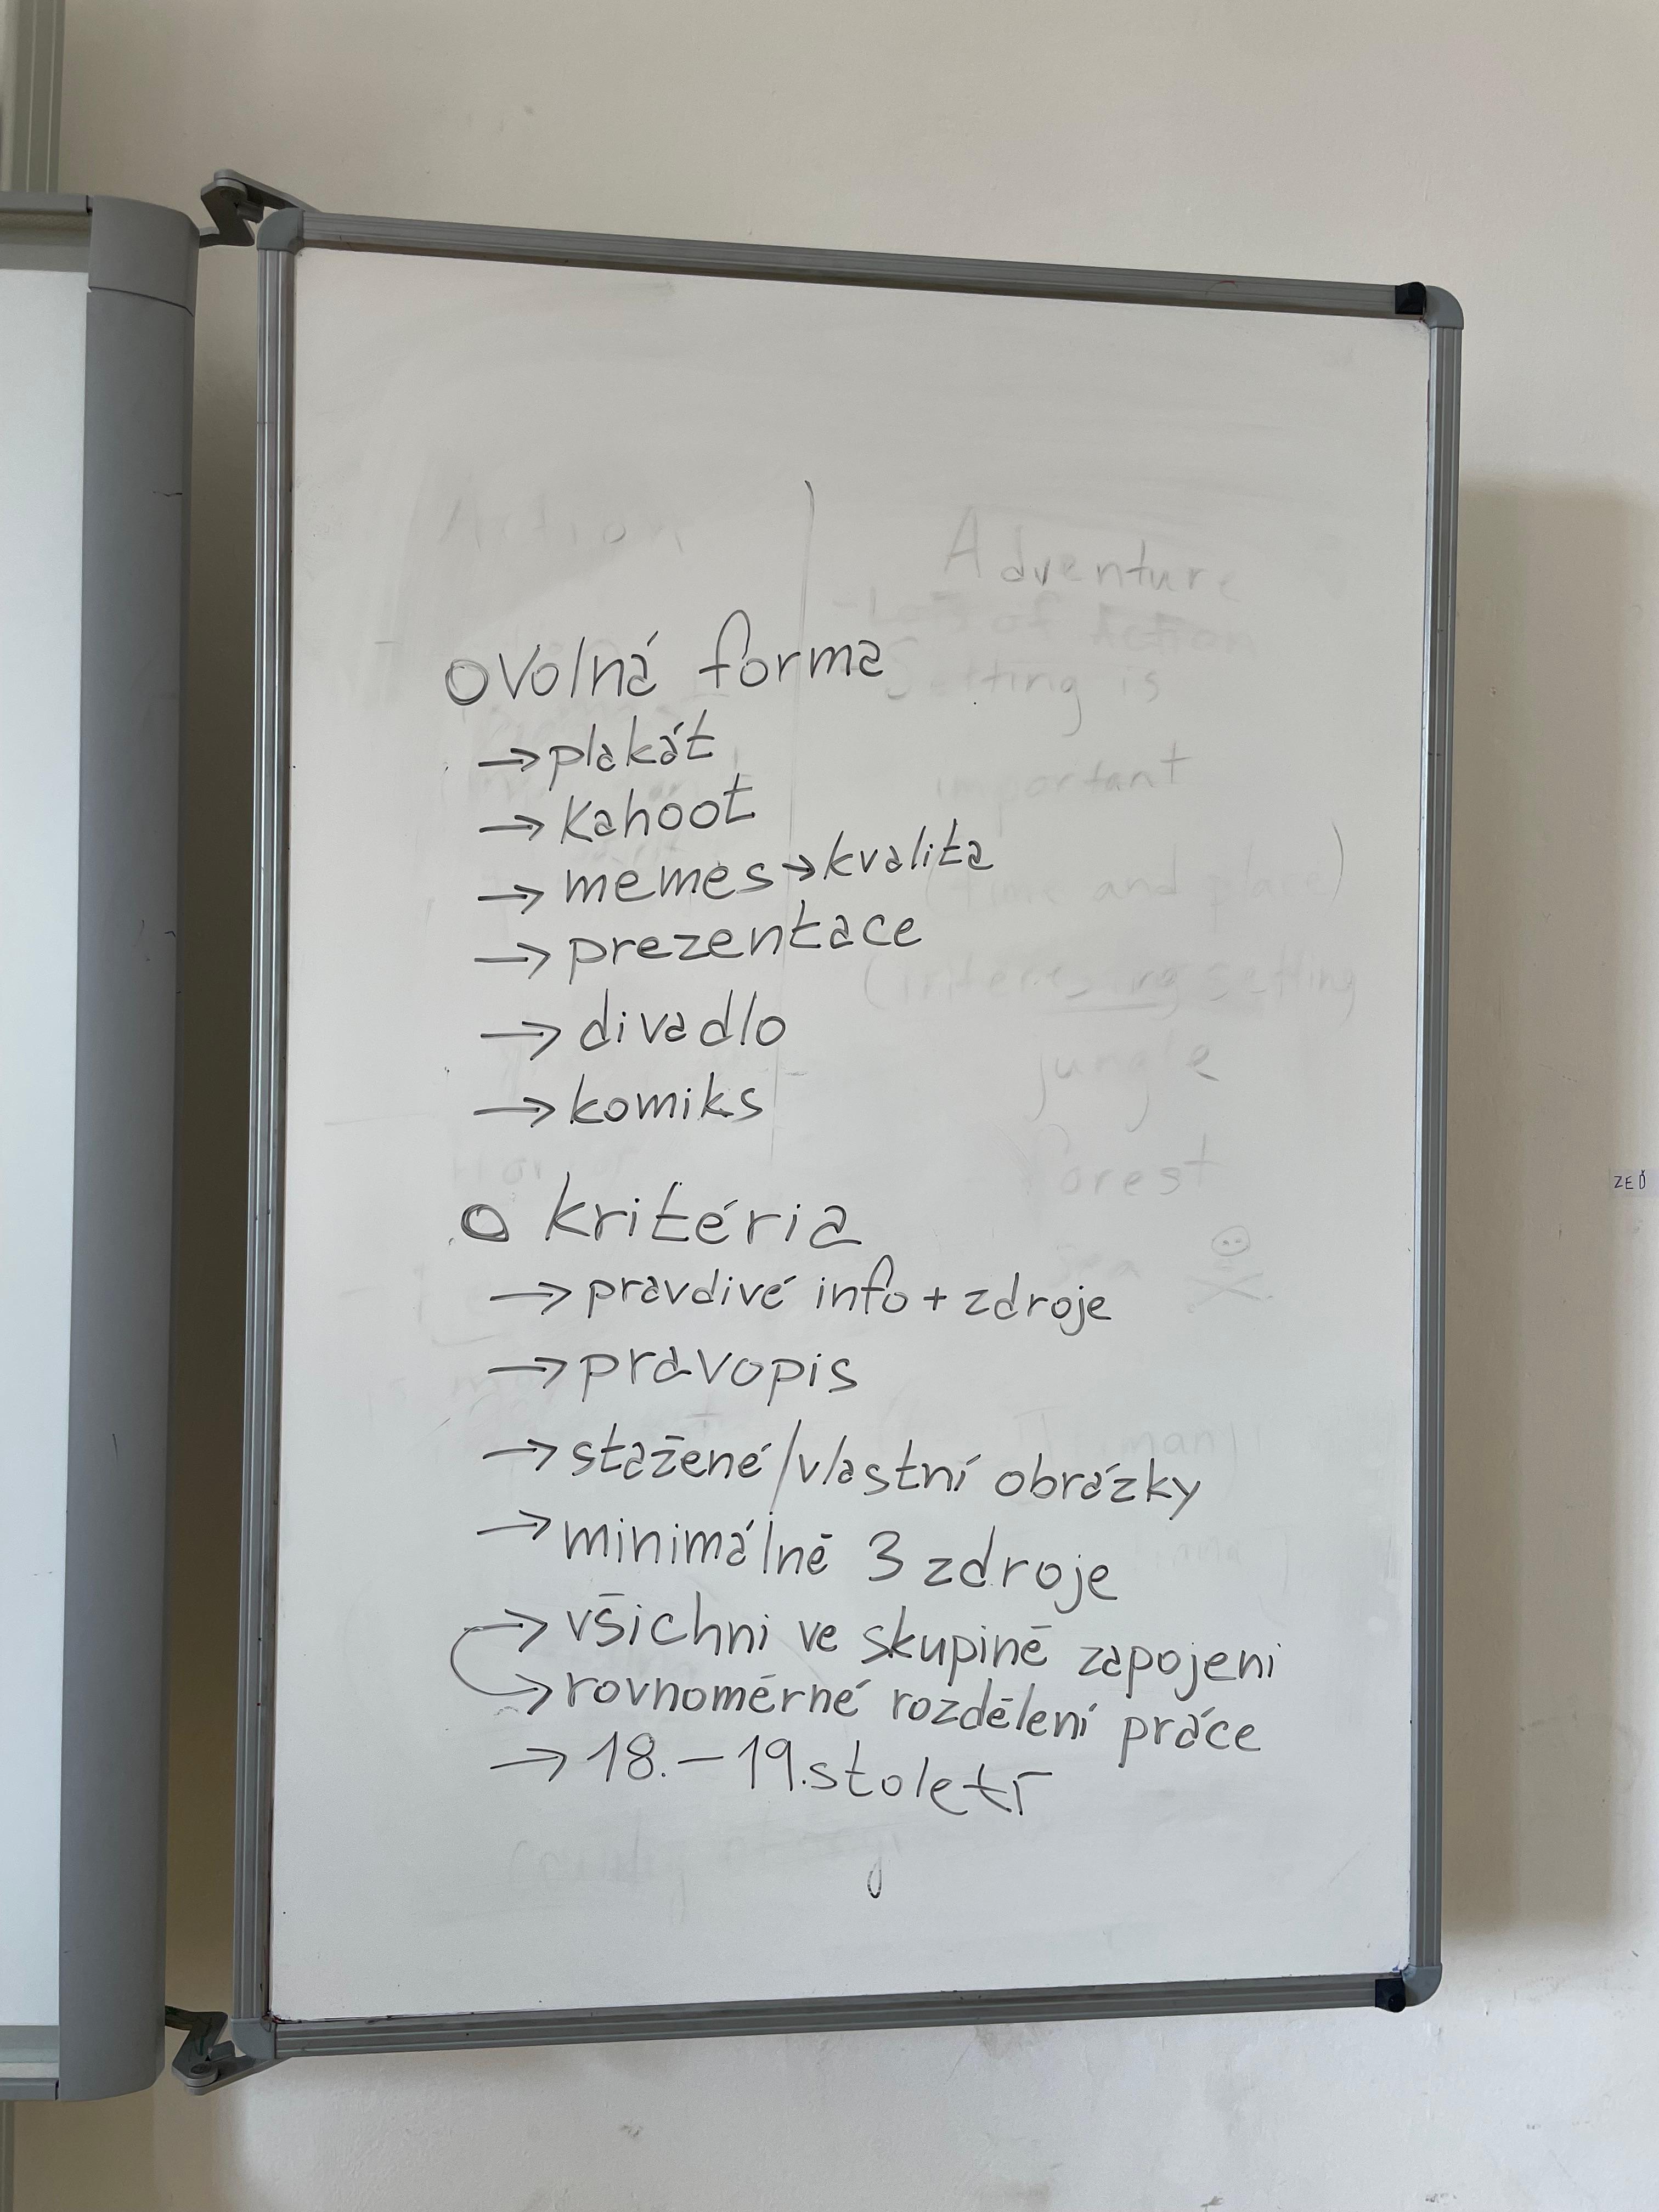 Action
Adventure
- Lots of Action
Setting is
important
(time and place)
(interesting setting
jungle
Forest
Sea
○ volná forma
→ plakát
→ kahoot
→ memes → kvalita
→ prezentace
→ divadlo
→ komiks
○ kritéria
→ pravdivé info + zdroje
→ pravopis
→ stažené/vlastní obrázky
→ minimálně 3 zdroje
→ všichni ve skupině zapojeni
→ rovnoměrné rozdělení práce
→ 18. – 19. století
ZEĎ